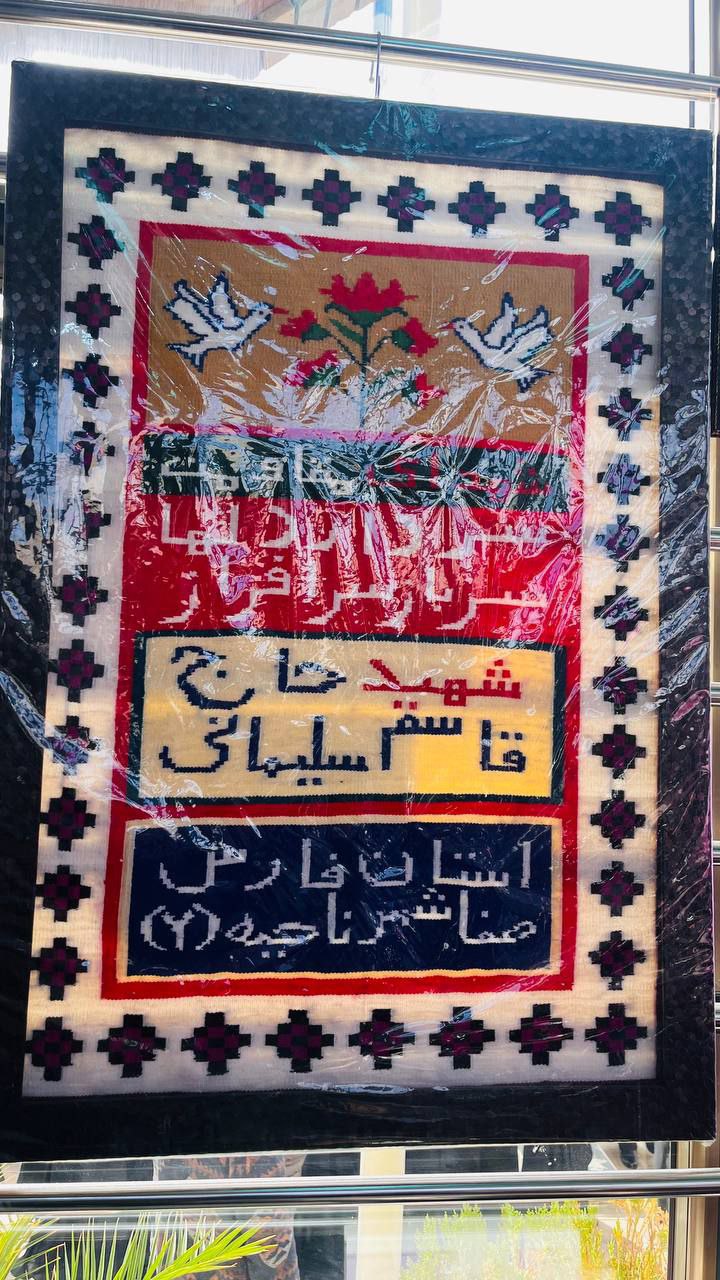 شهدای مقاومت
سردار دلها
سرباز سرافراز
شهید حاج
قاسم سلیمانی
استان فارس
صفاشهر ناحیه (۲)